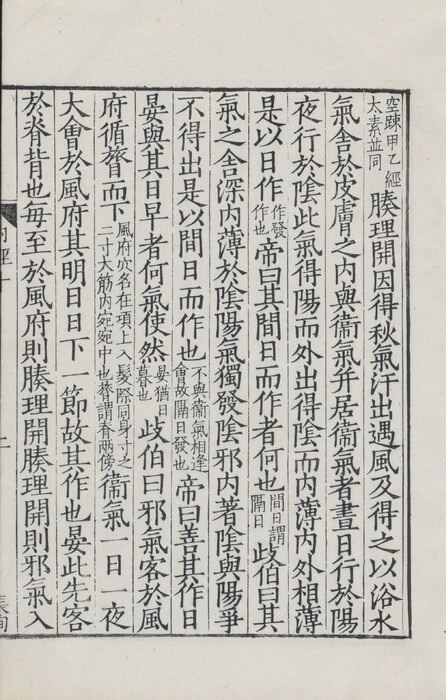 空踈甲乙經太素並同腠理開因得秋氣汗出遇風及得之以浴水
氣舍於皮膚之內與衞氣并居衞氣者晝日行於陽
夜行於陰此氣得陽而外出得陰而內薄內外相薄
是以日作作發作也帝曰其間日而作者何也間日謂隔日歧伯曰其
氣之舍深內薄於陰陽氣獨發陰邪內著陰與陽爭
不得出是以間日而作也不與衞氣相逢會故隔日發也帝曰善其作日
晏與其日早者何氣使然晏猶日暮也歧伯曰邪氣客於風
府循膂而下風府穴名在項上入髮際同身寸之二寸大筋內宛宛中也膂謂脊兩傍衞氣一日一夜
大會於風府其明日日下一節故其作也晏此先客
於脊背也每至於風府則腠理開腠理開則邪氣入